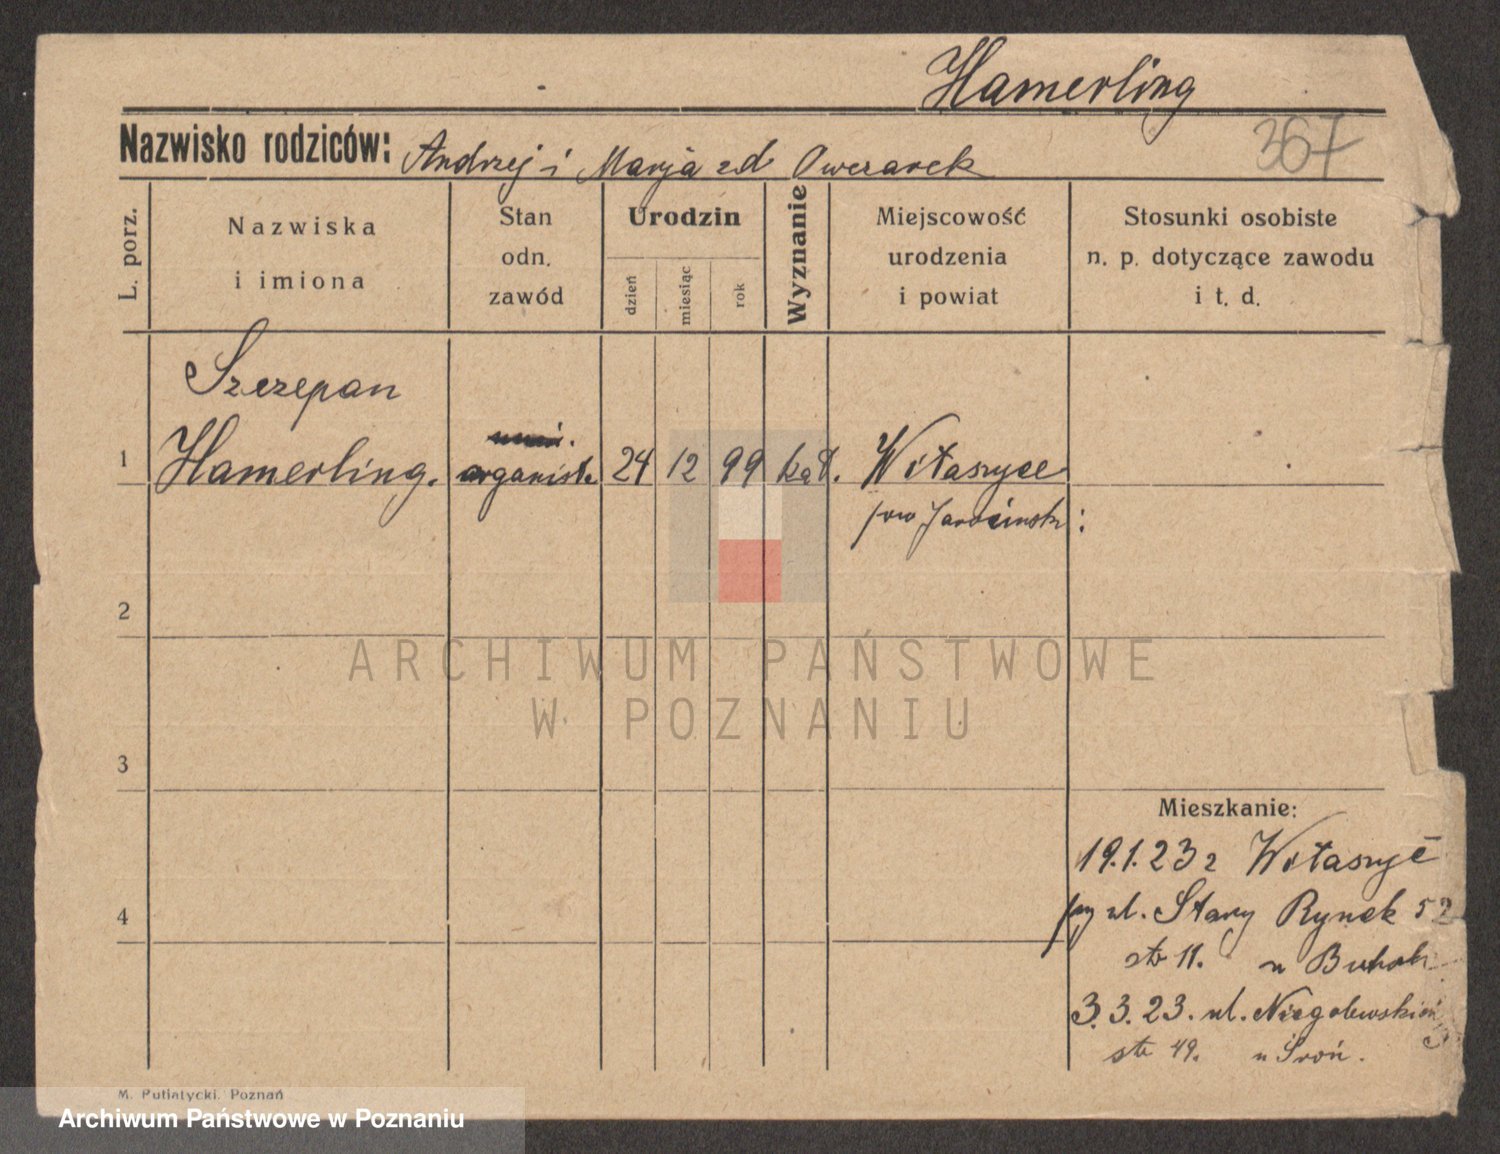 Hamerling
Nazwisko rodziców: Andrzej i Marja zd Owczarek
367
L. porz.
Nazwiska
i imiona
Stan
odn.
zawód
Urodzin
dzień
miesiąc
rok
Wyznanie
Miejscowość
urodzenia
i powiat
Stosunki osobiste
n. p. dotyczące zawodu
i t. d.
Szczepan
1 Hamerling. organist. 24 12 99 kat. Witaszyce
pow Jarocinsk:
2
ARCHIWUM PAŃSTWOWE
W POZNANIU
3
Mieszkanie:
19.1.23 z Witaszyc
ul. Stary Rynek 52
str 11. u
4
3.3.23. ul. Niegolewskich
str 49. u Sroń.
M. Putiatycki, Poznań
Archiwum Państwowe w Poznaniu